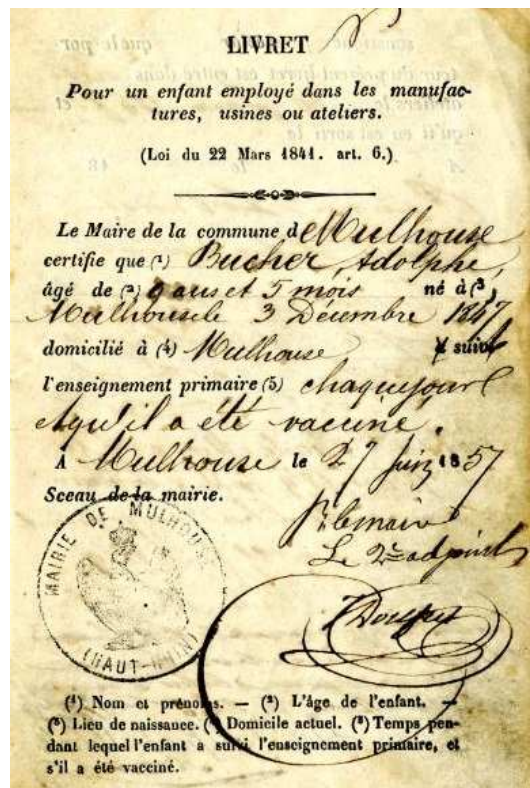 LIVRET
Pour un enfant employé dans les manufac-
tures, usines ou ateliers.
(Loi du 22 Mars 1841. art. 6.)
Le Maire de la commune de Mulhouse
certifie que (1) Bucher, Adolphe,
âgé de (2) 9 ans et 5 mois né à (3)
Mulhouse le 3 Décembre 1847
domicilié à (4) Mulhouse suivi
l'enseignement primaire (5) chaque jour
et qu'il a été vacciné.
A Mulhouse le 27 Juin 1857
Sceau de la mairie.
Le 2me adjoint
MAIRIE DE MULHOUSE
(HAUT-RHIN)
(1) Nom et prénoms. — (2) L'âge de l'enfant. —
(3) Lieu de naissance. (4) Domicile actuel. (5) Temps pen-
dant lequel l'enfant a suivi l'enseignement primaire, et
s'il a été vacciné.